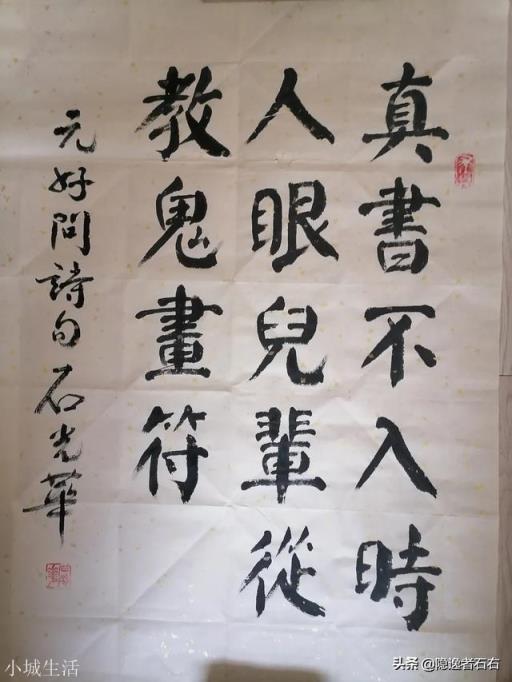 真書不入時
人眼兒輩從
教鬼畫符
元好問詩句石光華
小城生活
头条@隐逸者石右